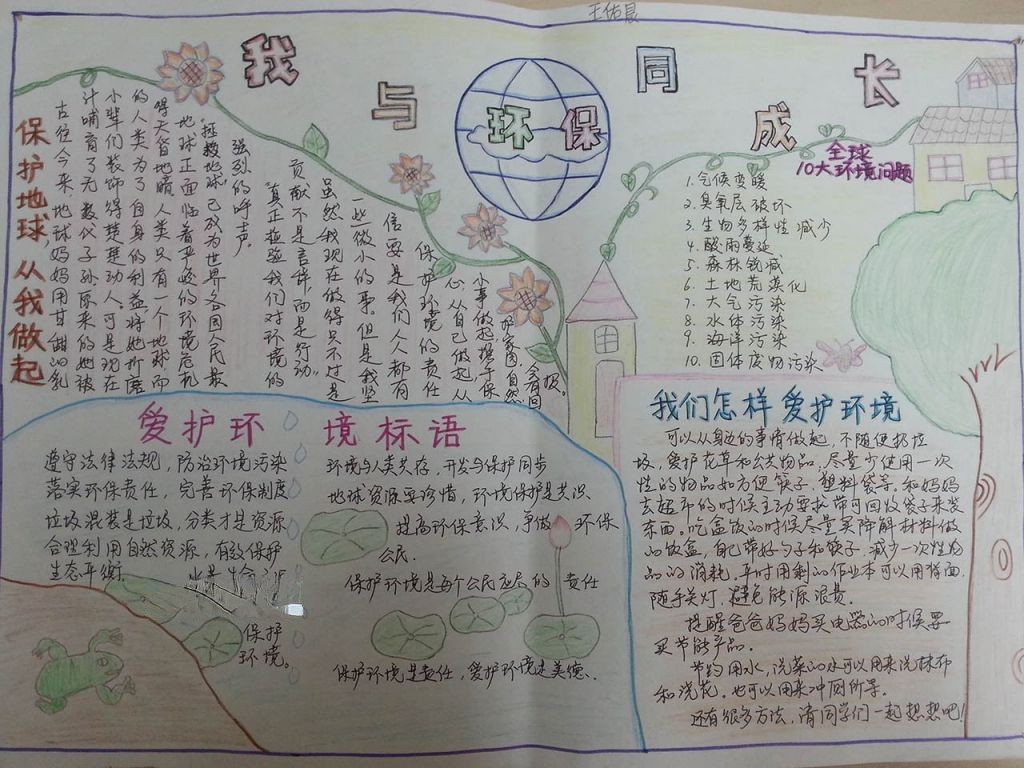 王佑晨
我与环保同成长
保护地球,从我做起
古往今来,地球妈妈用甘甜的乳
汁哺育了无数代子孙原来的她被
小辈们装饰得楚楚动人。可是现在
的人类为了自身的利益,将她折磨
得天昏地暗。人类只有一个地球;而
地球正面临着严峻的环境危机
“拯救地球”已成为世界各国人民最
强烈的呼声。
真正检验我们对环境的
贡献不是言辞,而是行动。
虽然我现在做得只不过是
一些微小的事。但是我坚
信要是我们人人都有
保护环境的责任
心,从自己做起,从
小事做起,携手保
护家园,自然
会有回
报。
全球
10大环境问题
1.气候变暖
2.臭氧层破坏
3.生物多样性减少
4.酸雨蔓延
5.森林锐减
6.土地荒漠化
7.大气污染
8.水体污染
9.海洋污染
10.固体废物污染
爱护环境标语
遵守法律法规,防治环境污染
落实环保责任,完善环保制度
垃圾混装是垃圾,分类才是资源
合理利用自然资源,有效保护
生态平衡
保护
环境。
环境与人类共存,开发与保护同步
地球资源要珍惜,环境保护是共识、
提高环保意识,争做环保
公民、
保护环境是每个公民应尽的责任
保护环境是责任,爱护环境是美德、
我们怎样爱护环境
可以从身边的事情做起,不随便扔垃
圾,爱护花草和公共物品,尽量少使用一次
性的物品如方便筷子,塑料袋等,和妈妈
去超市的时候主动要求带可回收袋子来装
东西。吃盒饭的时候尽量买降解材料做
的饭盒,自己带好勺子和筷子,减少一次性物
品的消耗。平时用剩的作业本可以用背面,
随手关灯,避免能源浪费。
提醒爸爸妈妈买电器的时候要
买节能产品。
节约用水,洗菜的水可以用来洗抹布
和浇花。也可以用来冲厕所等。
还有很多方法,请同学们一起想想吧!